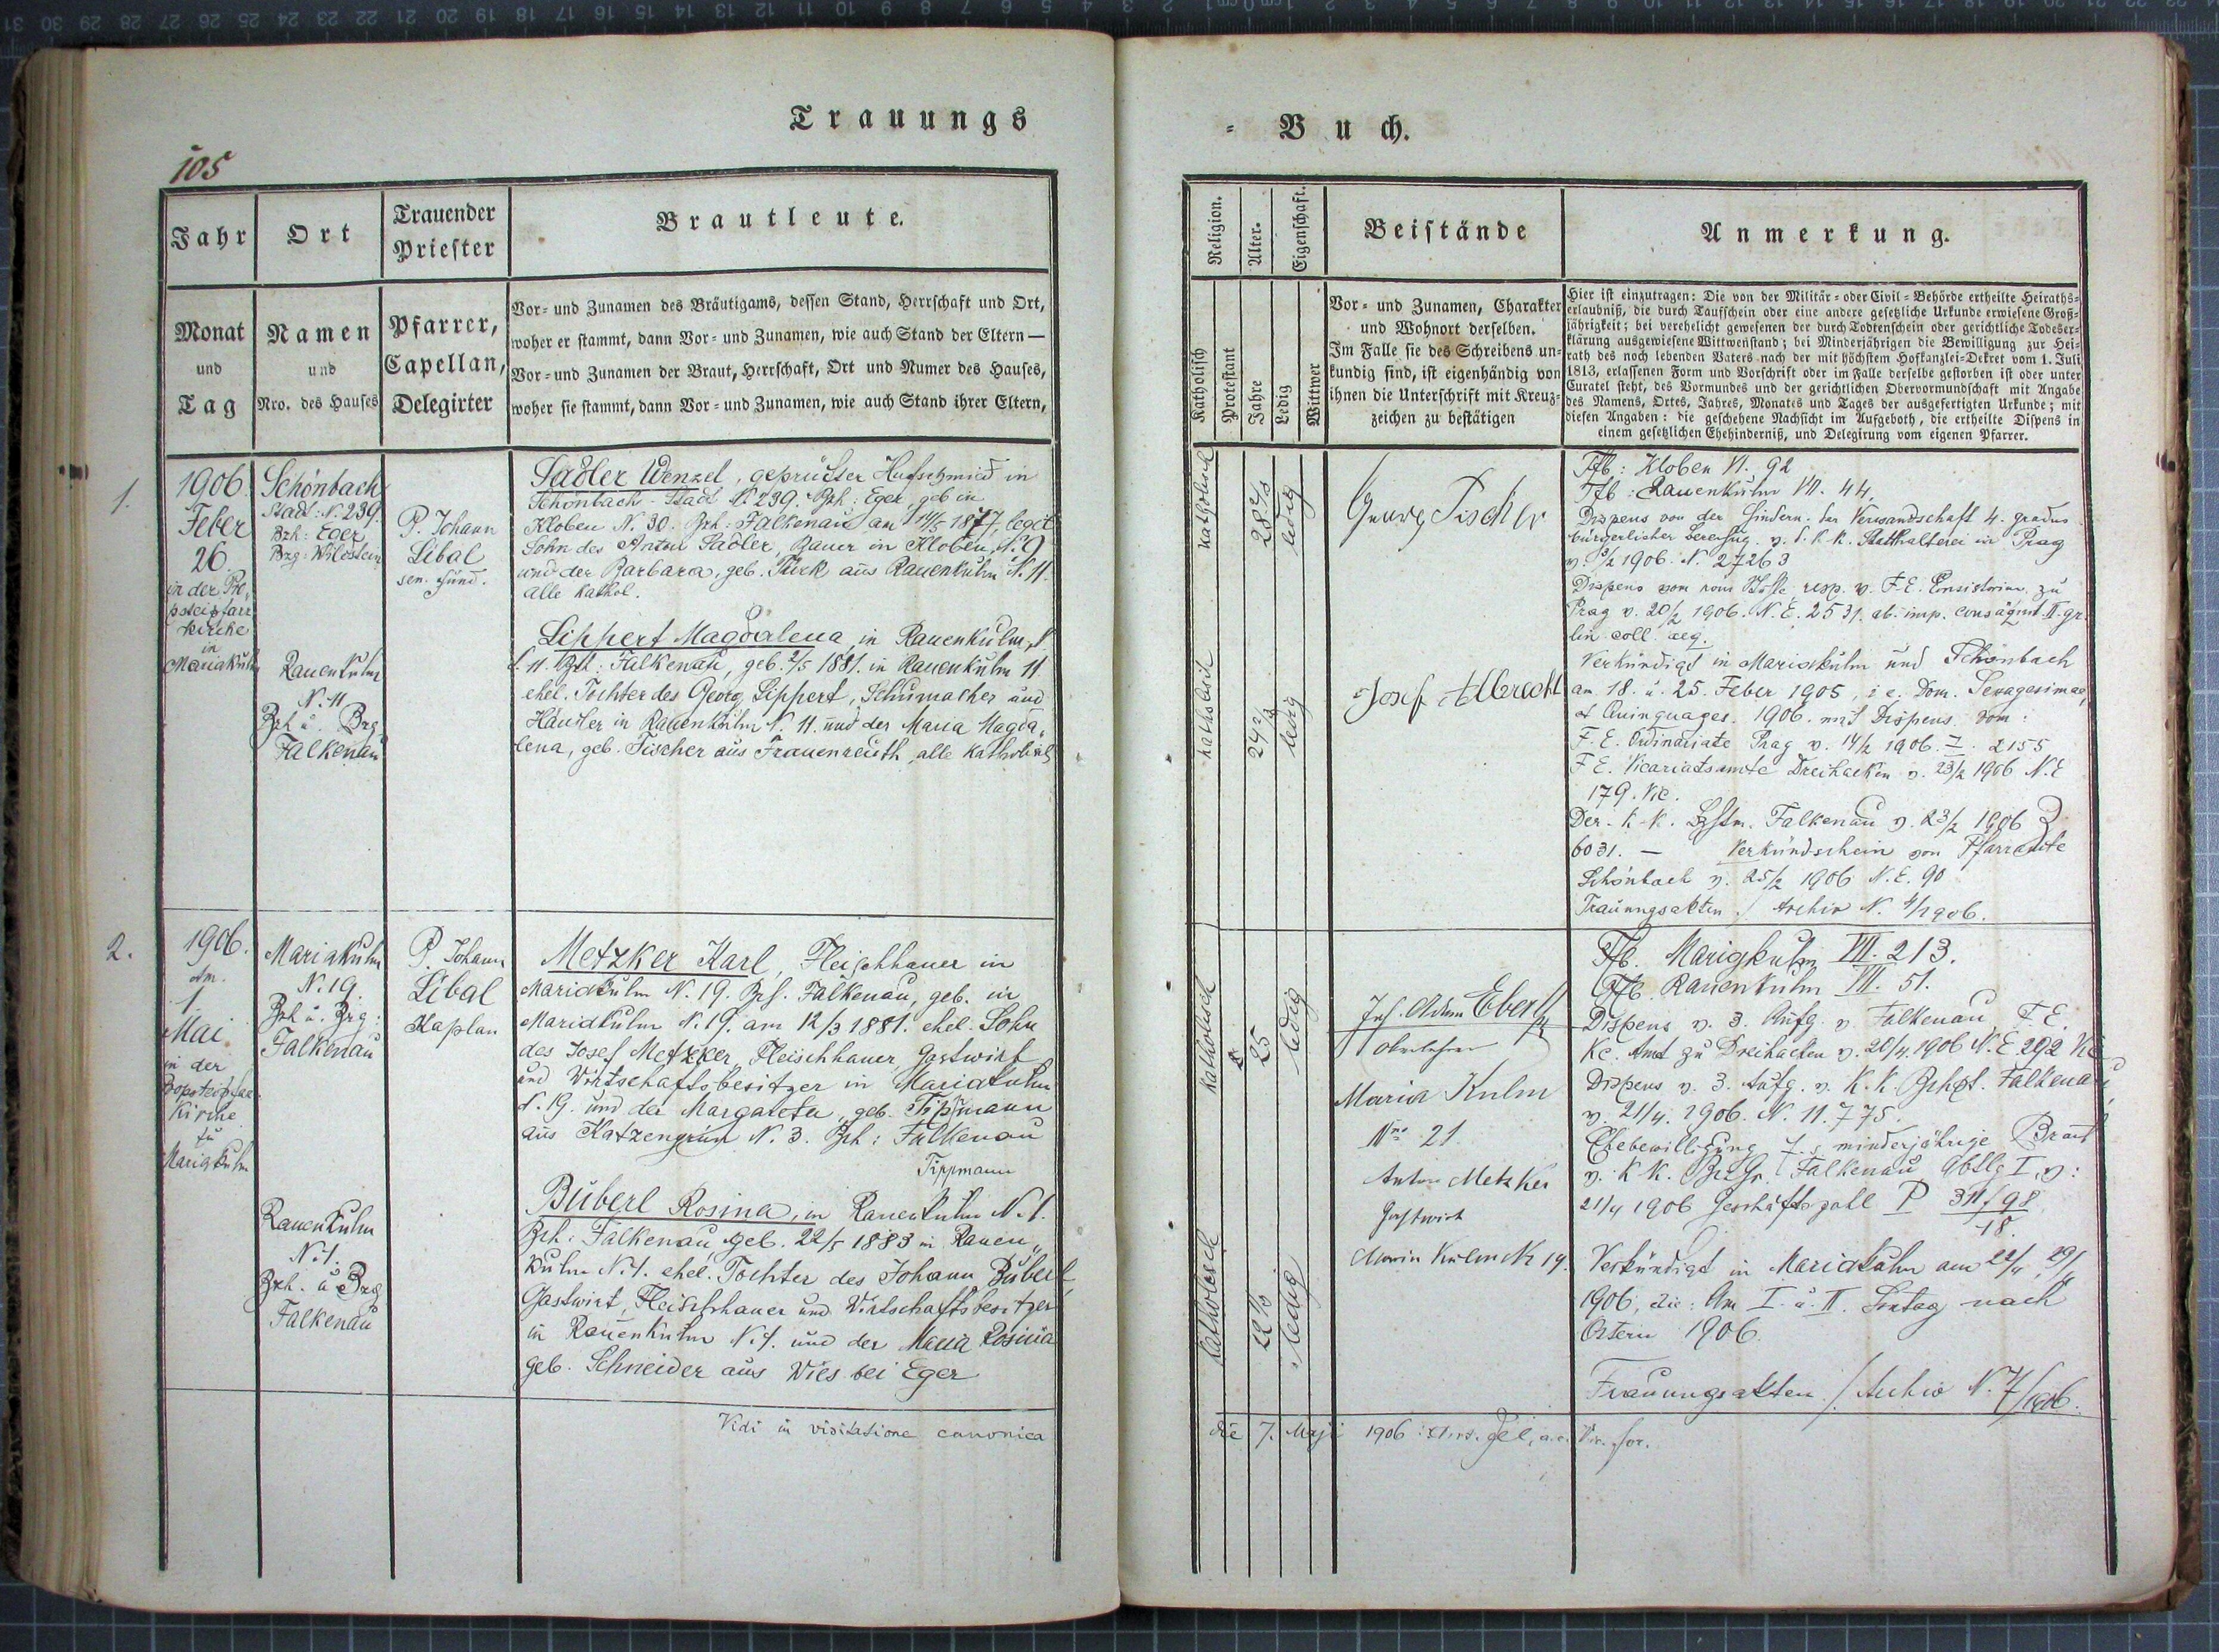 Trauungs
105
Jahr
Ort
Trauender
Priester
Brautleute.
Monat
und
Tag
Namen
und
Nro. des Hauses
Pfarrer,
Capellan,
Delegirter
Vor- und Zunamen des Bräutigams, dessen Stand, Herrschaft und Ort,
woher er stammt, dann Vor- und Zunamen, wie auch Stand der Eltern —
Vor- und Zunamen der Braut, Herrschaft, Ort und Numer des Hauses,
woher sie stammt, dann Vor- und Zunamen, wie auch Stand ihrer Eltern,
1.
1906.
Feber
26.
in der Pro-
psteipfarr
kirche
in
Mariakulm
Schönbach
Stadt: N. 239.
Bzh: Eger
Bzg: Wildstein
Rauenkulm
N. 11
Bzh u. Bzg
Falkenau
P. Johann
Libal
Sadler Wenzel, geprüfter Hufschmied in
Schönbach-Stadt N. 239. Bzh: Eger, geb in
Kloben N. 30. Bzh: Falkenau am 14/5 1877, legit
Sohn des Anton Sadler, Bauer in Kloben, N. 9
und der Barbara, geb. Türk aus Rauenkulm N. 11.
alle kathol.
Lippert Magdalena, in Rauenkulm,
N. 11. Bzh: Falkenau, geb. 2/5 1881. in Rauenkulm 11
ehel. Tochter des Georg Lippert, Schumacher und
Häusler in Rauenkulm N. 11. und der Maria Magda-
lena, geb. Fischer aus Frauenreuth, alle katholisch
2.
1906.
am
1.
Mai
in der
Propsteipfarr
kirche
zu
Mariakulm
Mariakulm
N. 19.
Bzh u. Bzg:
Falkenau
Rauenkulm
N. 1.
Bzh. u Bzg
Falkenau
P. Johann
Libal
Kaplan
Metzker Karl, Fleischhauer in
Mariakulm N. 19. Bzh. Falkenau, geb. in
Mariakulm N. 19. am 12/3 1881. ehel. Sohn
des Josef Metzker, Fleischhauer, Gastwirt
und Wirtschaftsbesitzer in Mariakulm
N. 19. und der Margareta, geb. Tippmann
aus Katzengrün N. 3. Bzh: Falkenau
Tippmann
Büberl Rosina, in Rauenkulm N. 1.
Bzh: Falkenau, geb. 22/5 1883 in Rauen-
kulm N. 1. ehel. Tochter des Johann Büberl
Gastwirt, Fleischhauer und Wirtschaftsbesitzer
in Rauenkulm N. 1. und der Maria Rosina
geb. Schneider aus Wies bei Eger
Vidi in visitatione canonica
= Buch.
Religion.
Alter.
Eigenschaft.
Beistände
Anmerkung.
Katholisch
Protestant
Jahre
Ledig
Wittwer
Vor- und Zunamen, Charakter
und Wohnort derselben.
Im Falle sie des Schreibens un-
kundig sind, ist eigenhändig von
ihnen die Unterschrift mit Kreuz-
zeichen zu bestätigen
Hier ist einzutragen: Die von der Militär- oder Civil-Behörde ertheilte Heiraths-
erlaubniß, die durch Taufschein oder eine andere gesetzliche Urkunde erwiesene Groß-
jährigkeit; bei verehelicht gewesenen der durch Todtenschein oder gerichtliche Todeser-
klärung ausgewiesene Wittwenstand; bei Minderjährigen die Bewilligung zur Hei-
rath des noch lebenden Vaters nach der mit höchstem Hofkanzlei-Dekret vom 1. Juli
1813, erlassenen Form und Vorschrift oder im Falle derselbe gestorben ist oder unter
Curatel steht, des Vormundes und der gerichtlichen Obervormundschaft mit Angabe
des Namens, Ortes, Jahres, Monates und Tages der ausgefertigten Urkunde; mit
diesen Angaben: die geschehene Nachsicht im Aufgeboth, die ertheilte Dispens in
einem gesetzlichen Ehehinderniß, und Delegirung vom eigenen Pfarrer.
katholisch
ledig
Georg Fischer
katholisch
ledig
Josef Albrecht
Tfb: Kloben VI. 92
Tfb: Rauenkulm VII. 44.
Dispens von der Hindern. der Verwandschaft 4. gradus
bürgerlicher v. k. k. Statthalterei in Prag
1906. N. 27263
Dispens vom resp. v. F. E. Consistorium zu
Prag v. 20/2 1906. N. E. 2531. ab. imp. II gr.
lin coll. aeq.
Verkündigt in Mariakulm und Schönbach
am 18. u. 25. Feber 1905, i e. Dom. Sexagesimae
et Quinquages. 1906. mit Dispens. vom:
F. E. Ordinariate Prag v. 14/2 1906. Z. 2155
F. E. Vicariatsamte Dreihacken v. 23/2 1906 N. E
179.
Der k. k. Falkenau v. 23/2 1906 Z
6031. — Verkündschein vom Pfarramte
Schönbach v. 25/2 1906 N. E. 90
Trauungsakten / Archiv N. 4/1906.
katholisch
25
ledig
Jos. Adam Eberl
Oberlehrer
Maria Kulm
Nro 21.
Anton Metzker
Gastwirt
Maria Kulm Nr 19.
katholisch
ledig
Tfb. Mariakulm VII. 213.
Tfb. Rauenkulm VII. 51.
Dispens v. 3. Aufg. v. Falkenau F. E.
Amt zu Dreihacken v. 20/4. 1906 N. E. 292
Dispens v. 3. Aufg. v. K. K. Falkenau
v. 21/4. 1906. N. 11.775.
Ehebewilligung f. minderjährige Braut
v. K. K. Falkenau Abtlg I, v:
21/4 1906 Geschäftszahl P 311/98
18.
Verkündigt in Mariakulm am 22/4, 29/4
1906, die: Am I. u. II. Sontag nach
Ostern 1906.
Trauungsakten / Archiv N. 7/1906.
die 7. Maji 1906